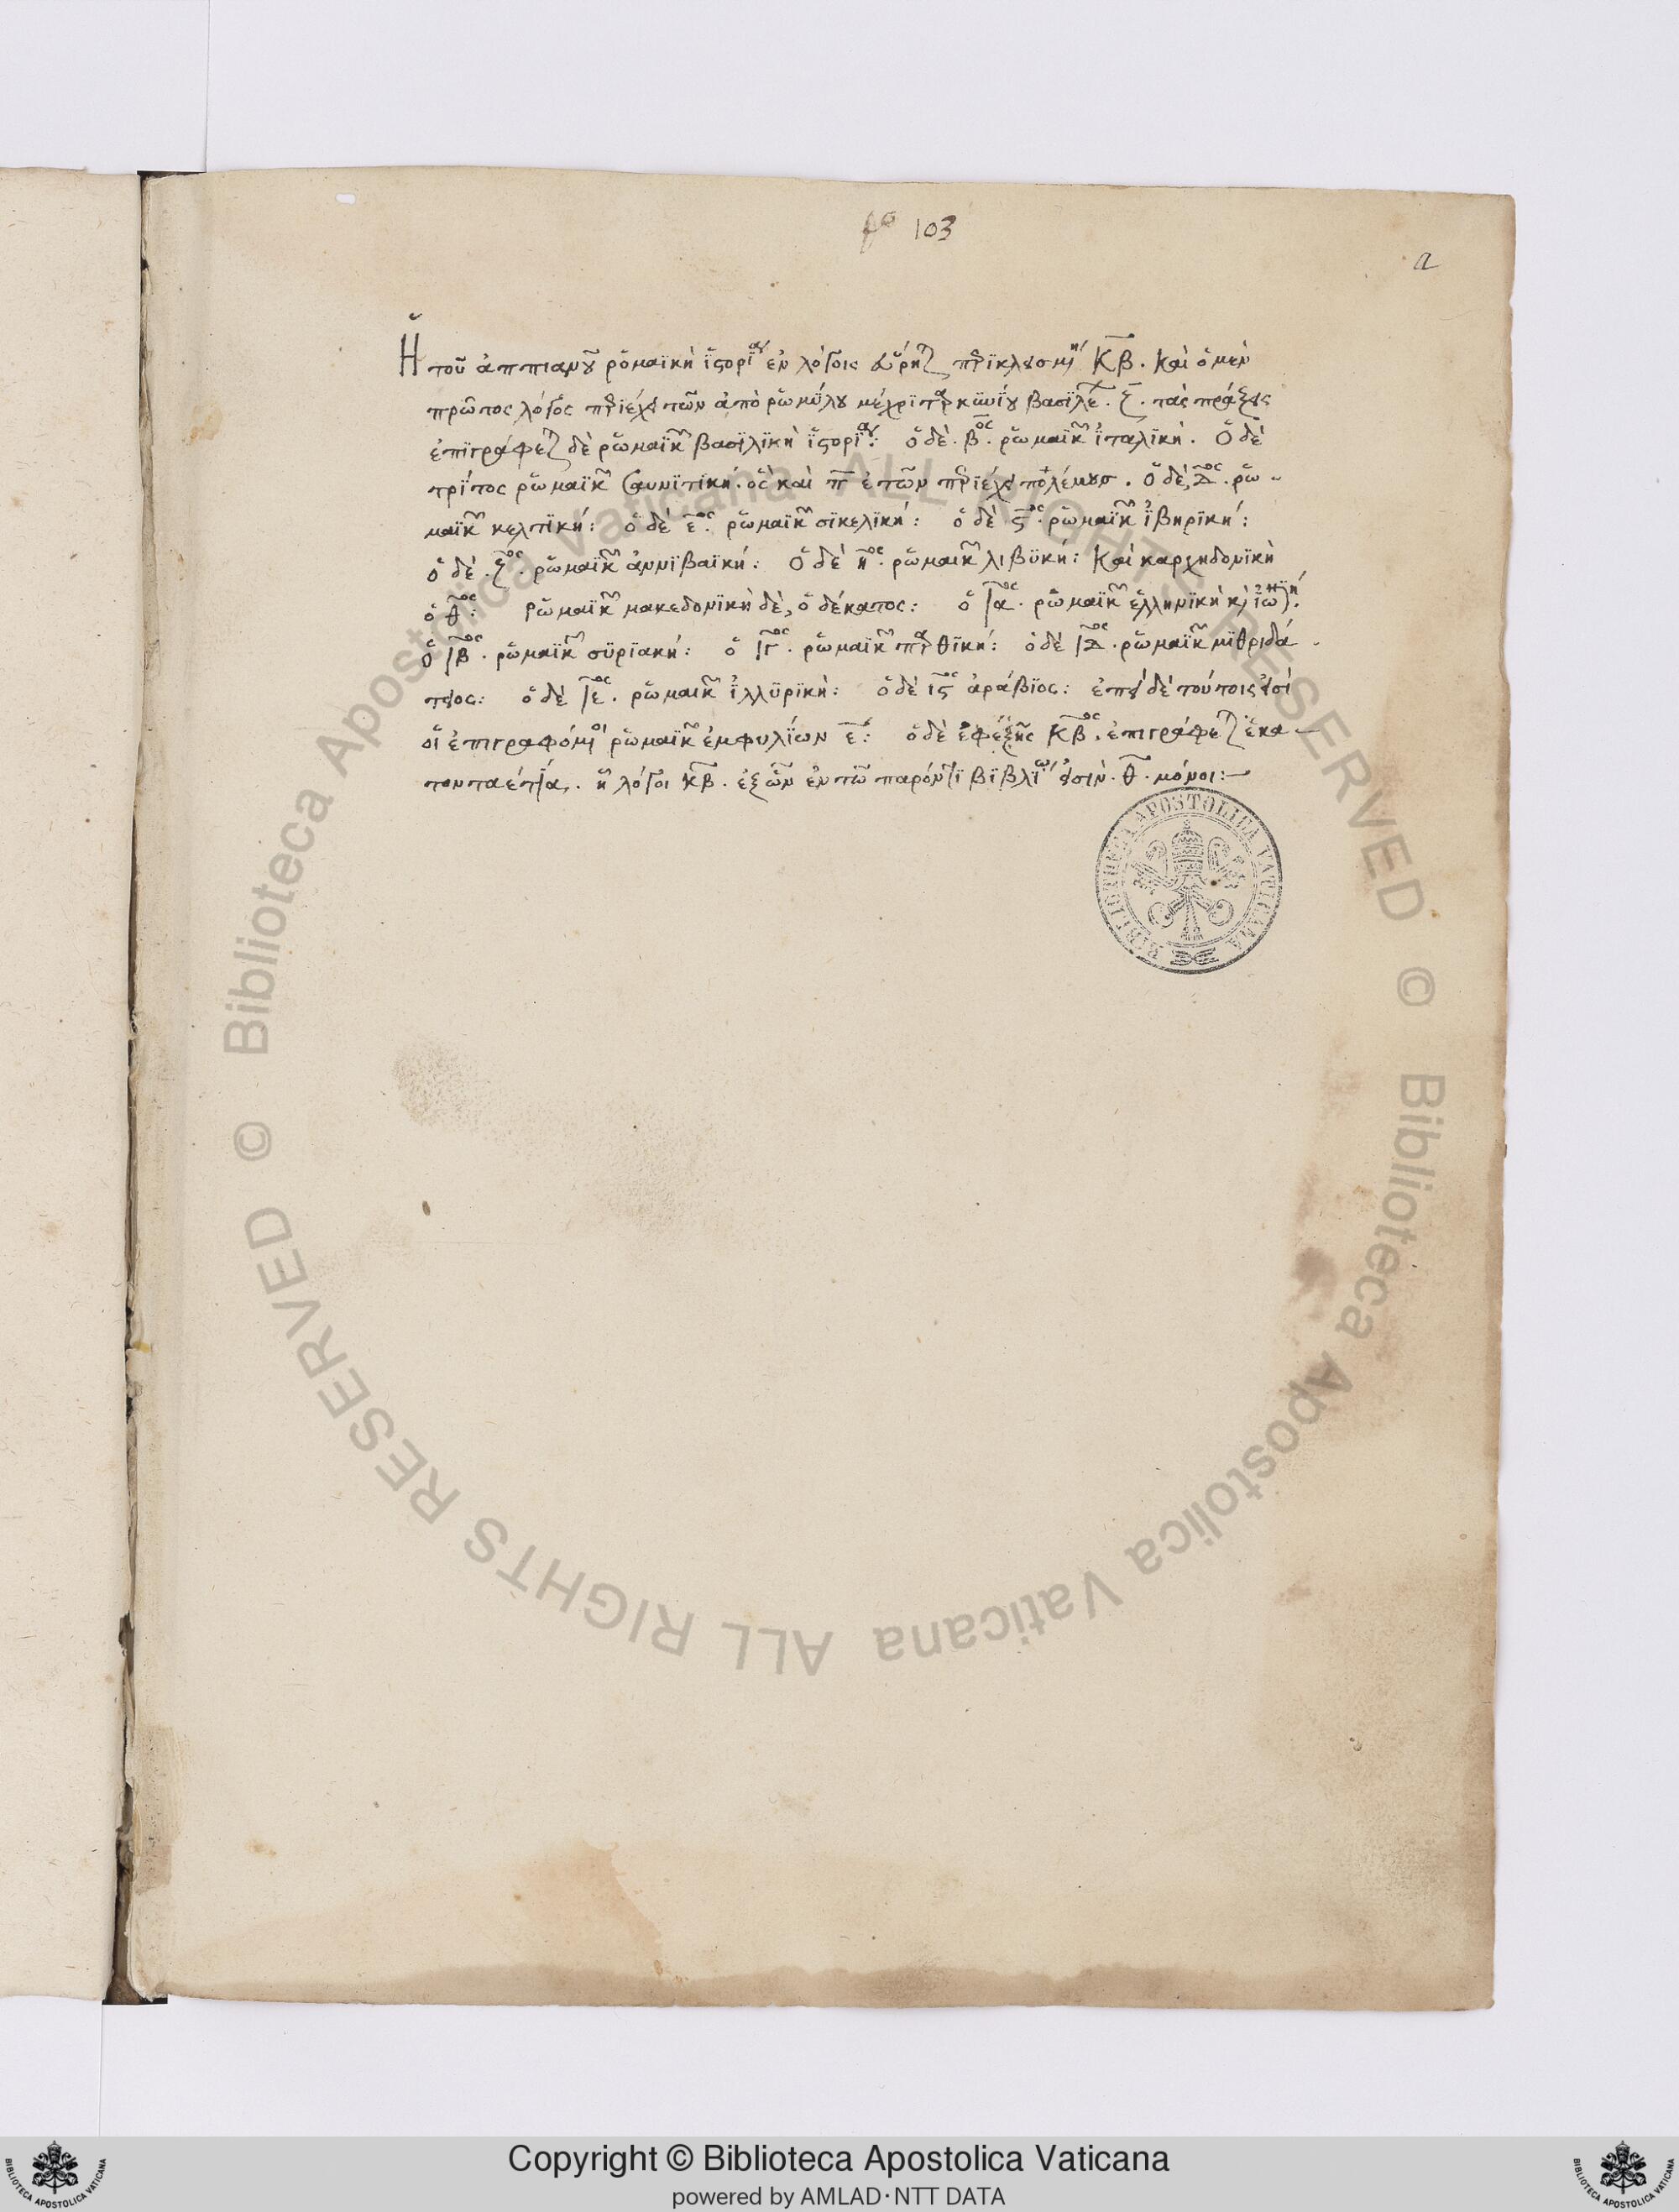 fo 103
a
Ἡ τοῦ ἀππιανοῦ ῥομαϊκὴ ἱστορία ἐν λόγοις εὕρηται περικλειομένη κβ. καὶ ὁ μὲν
πρῶτος λόγος περιέχει τῶν ἀπὸ ῥωμύλου μέχρι ταρκυνίου βασιλέων ζ. τὰς πράξεις
ἐπιγράφεται δὲ ῥωμαϊκῶν βασιλικὴ ἱστορία: ὁ δὲ β.ος ῥωμαϊκῶν ἰταλική. Ὁ δὲ
τρίτος ῥωμαϊκῶν σαυνιτική. ὃς καὶ π ἐτῶν περιέχει πολέμους. ὁ δὲ δος. ῥω-
μαϊκῶν κελτική: ὁ δὲ εος. ῥωμαϊκῶν σικελική: ὁ δὲ ϛος. ῥωμαϊκῶν ἰβηρική:
ὁ δὲ .ζος. ῥωμαϊκῶν ἀννιβαϊκή: Ὁ δὲ ηος. ῥωμαικῶν λιβυκή: καὶ καρχηδονικὴ
ὁ θος: ῥωμαϊκῶν μακεδονικὴ δὲ, ὁ δέκατος: ὁ ιαος. ῥωμαϊκῶν ἑλληνικὴ κὶ ἰωνική.
ὁ ιβος. ῥωμαϊκῶν συριακή: ὁ ιγος. ῥωμαϊκῶν παρθική: ὁ δὲ ιδος. ῥωμαϊκῶν μιθριδά-
τειος: ὁ δὲ ιεος. ῥωμαικῶν ἰλλυρική: ὁ δὲ ιϛος ἀράβιος: ἐπεὶ δὲ τούτοις εἰσὶ
οἱ ἐπιγραφόμενοι ῥωμαϊκῶν ἐμφυλίων ε: ὁ δὲ ἐφεξῆς κβος. ἐπιγράφεται ἑκα-
τονταετία. ἢ λόγοι κβ. ἐξ ὧν ἐν τῶ παρόντι βιβλίω εἰσὶν. θ. μόνοι:—
BIBLIOTHECA APOSTOLICA VATICANA
© Biblioteca Apostolica Vaticana ALL RIGHTS RESERVED
© Biblioteca Apostolica Vaticana ALL RIGHTS RESERVED
Copyright © Biblioteca Apostolica Vaticana
powered by AMLAD・NTT DATA
BIBLIOTECA APOSTOLICA VATICANA
BIBLIOTECA APOSTOLICA VATICANA